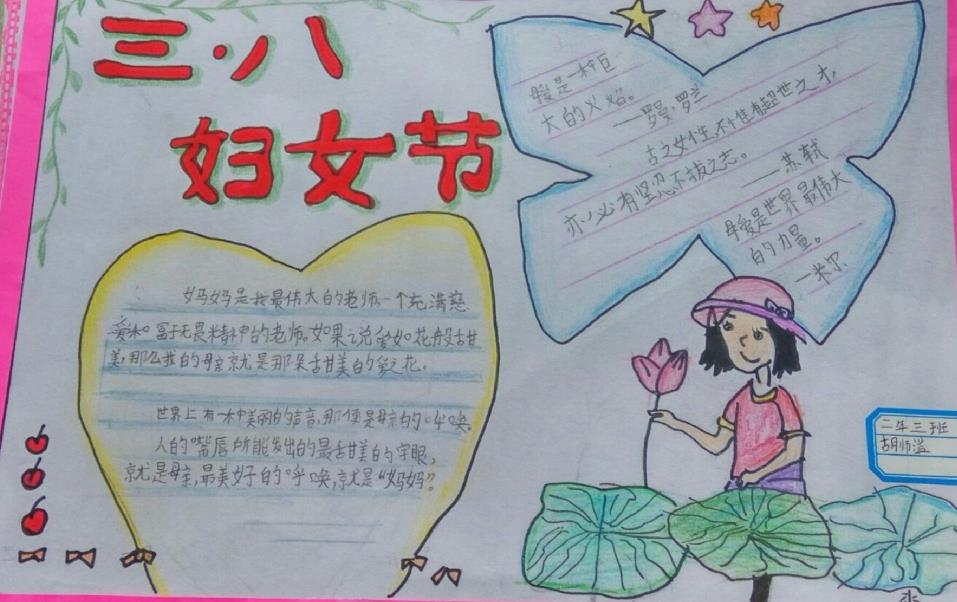 三·八
妇女节
母爱是一种巨
大的火焰。
——罗曼·罗兰
古之女性,不惟有超世之才,
亦必有坚忍不拔之志。
——苏轼
母爱是世界最伟大
的力量。
—米尔
妈妈是我最伟大的老师,一个充满慈
爱和富于无畏精神的老师。如果说爱如花般甜
美,那么我的母亲就是那朵甜美的爱之花。
世界上有一种美丽的声音,那便是母亲的呼唤。
人的嘴唇所能发出的最甜美的字眼,
就是母亲,最美好的呼唤,就是“妈妈”。
二年三班
胡师溢